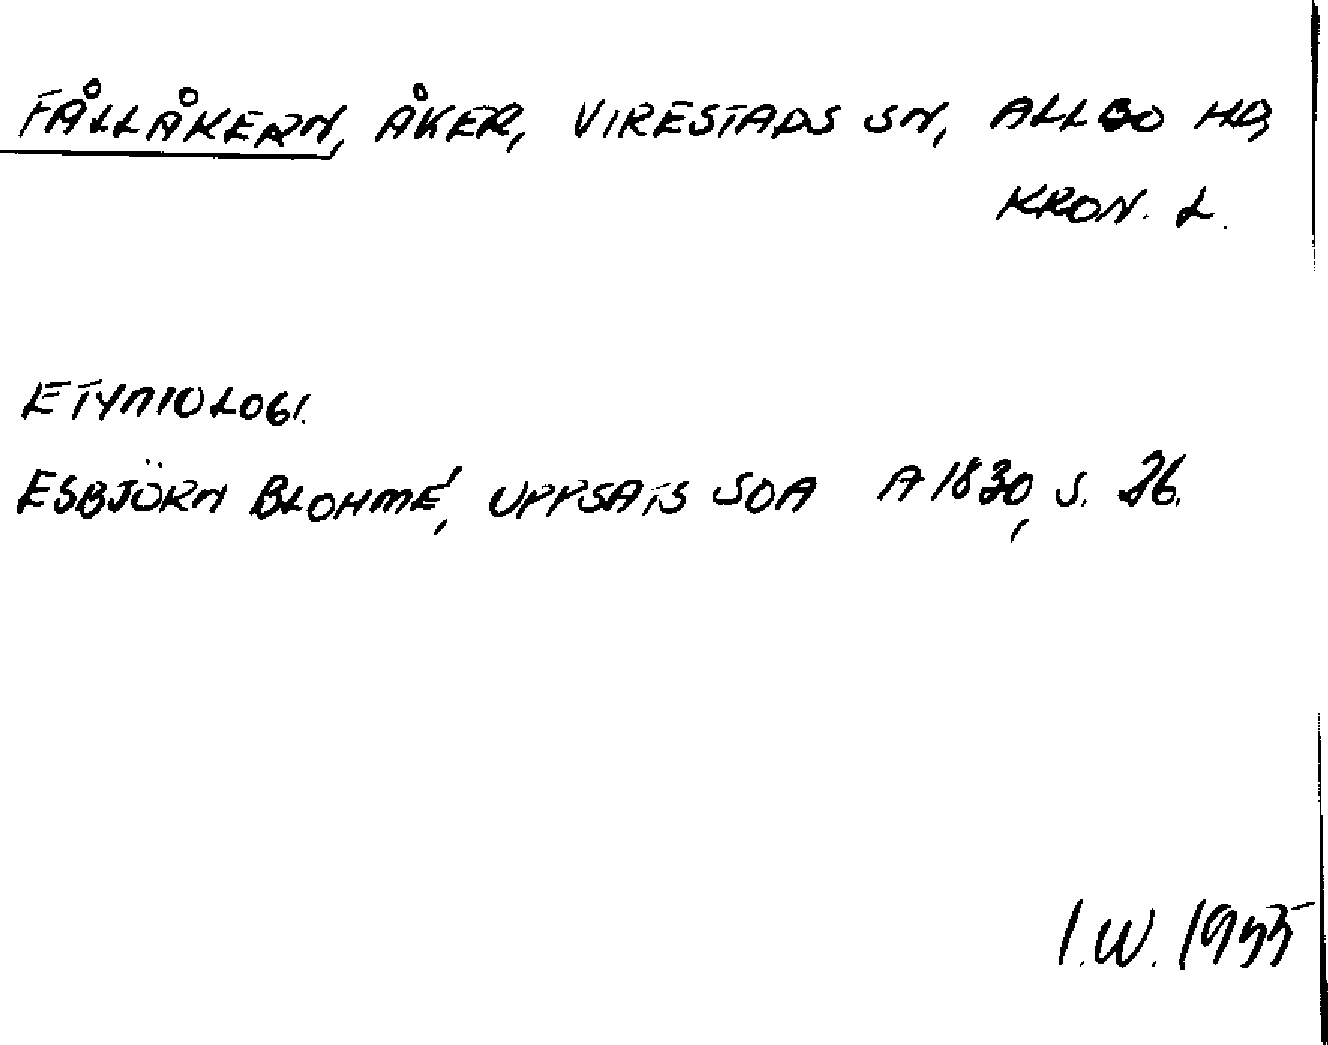 FÅLLÅKERN, ÅKER, VIRESTADS SN, ALLBO HD,
KRON. L.
ETYMOLOGI.
ESBJÖRN BLOHMÉ, UPPSATS SOA A 1830, S. 26.
I.W. 1955